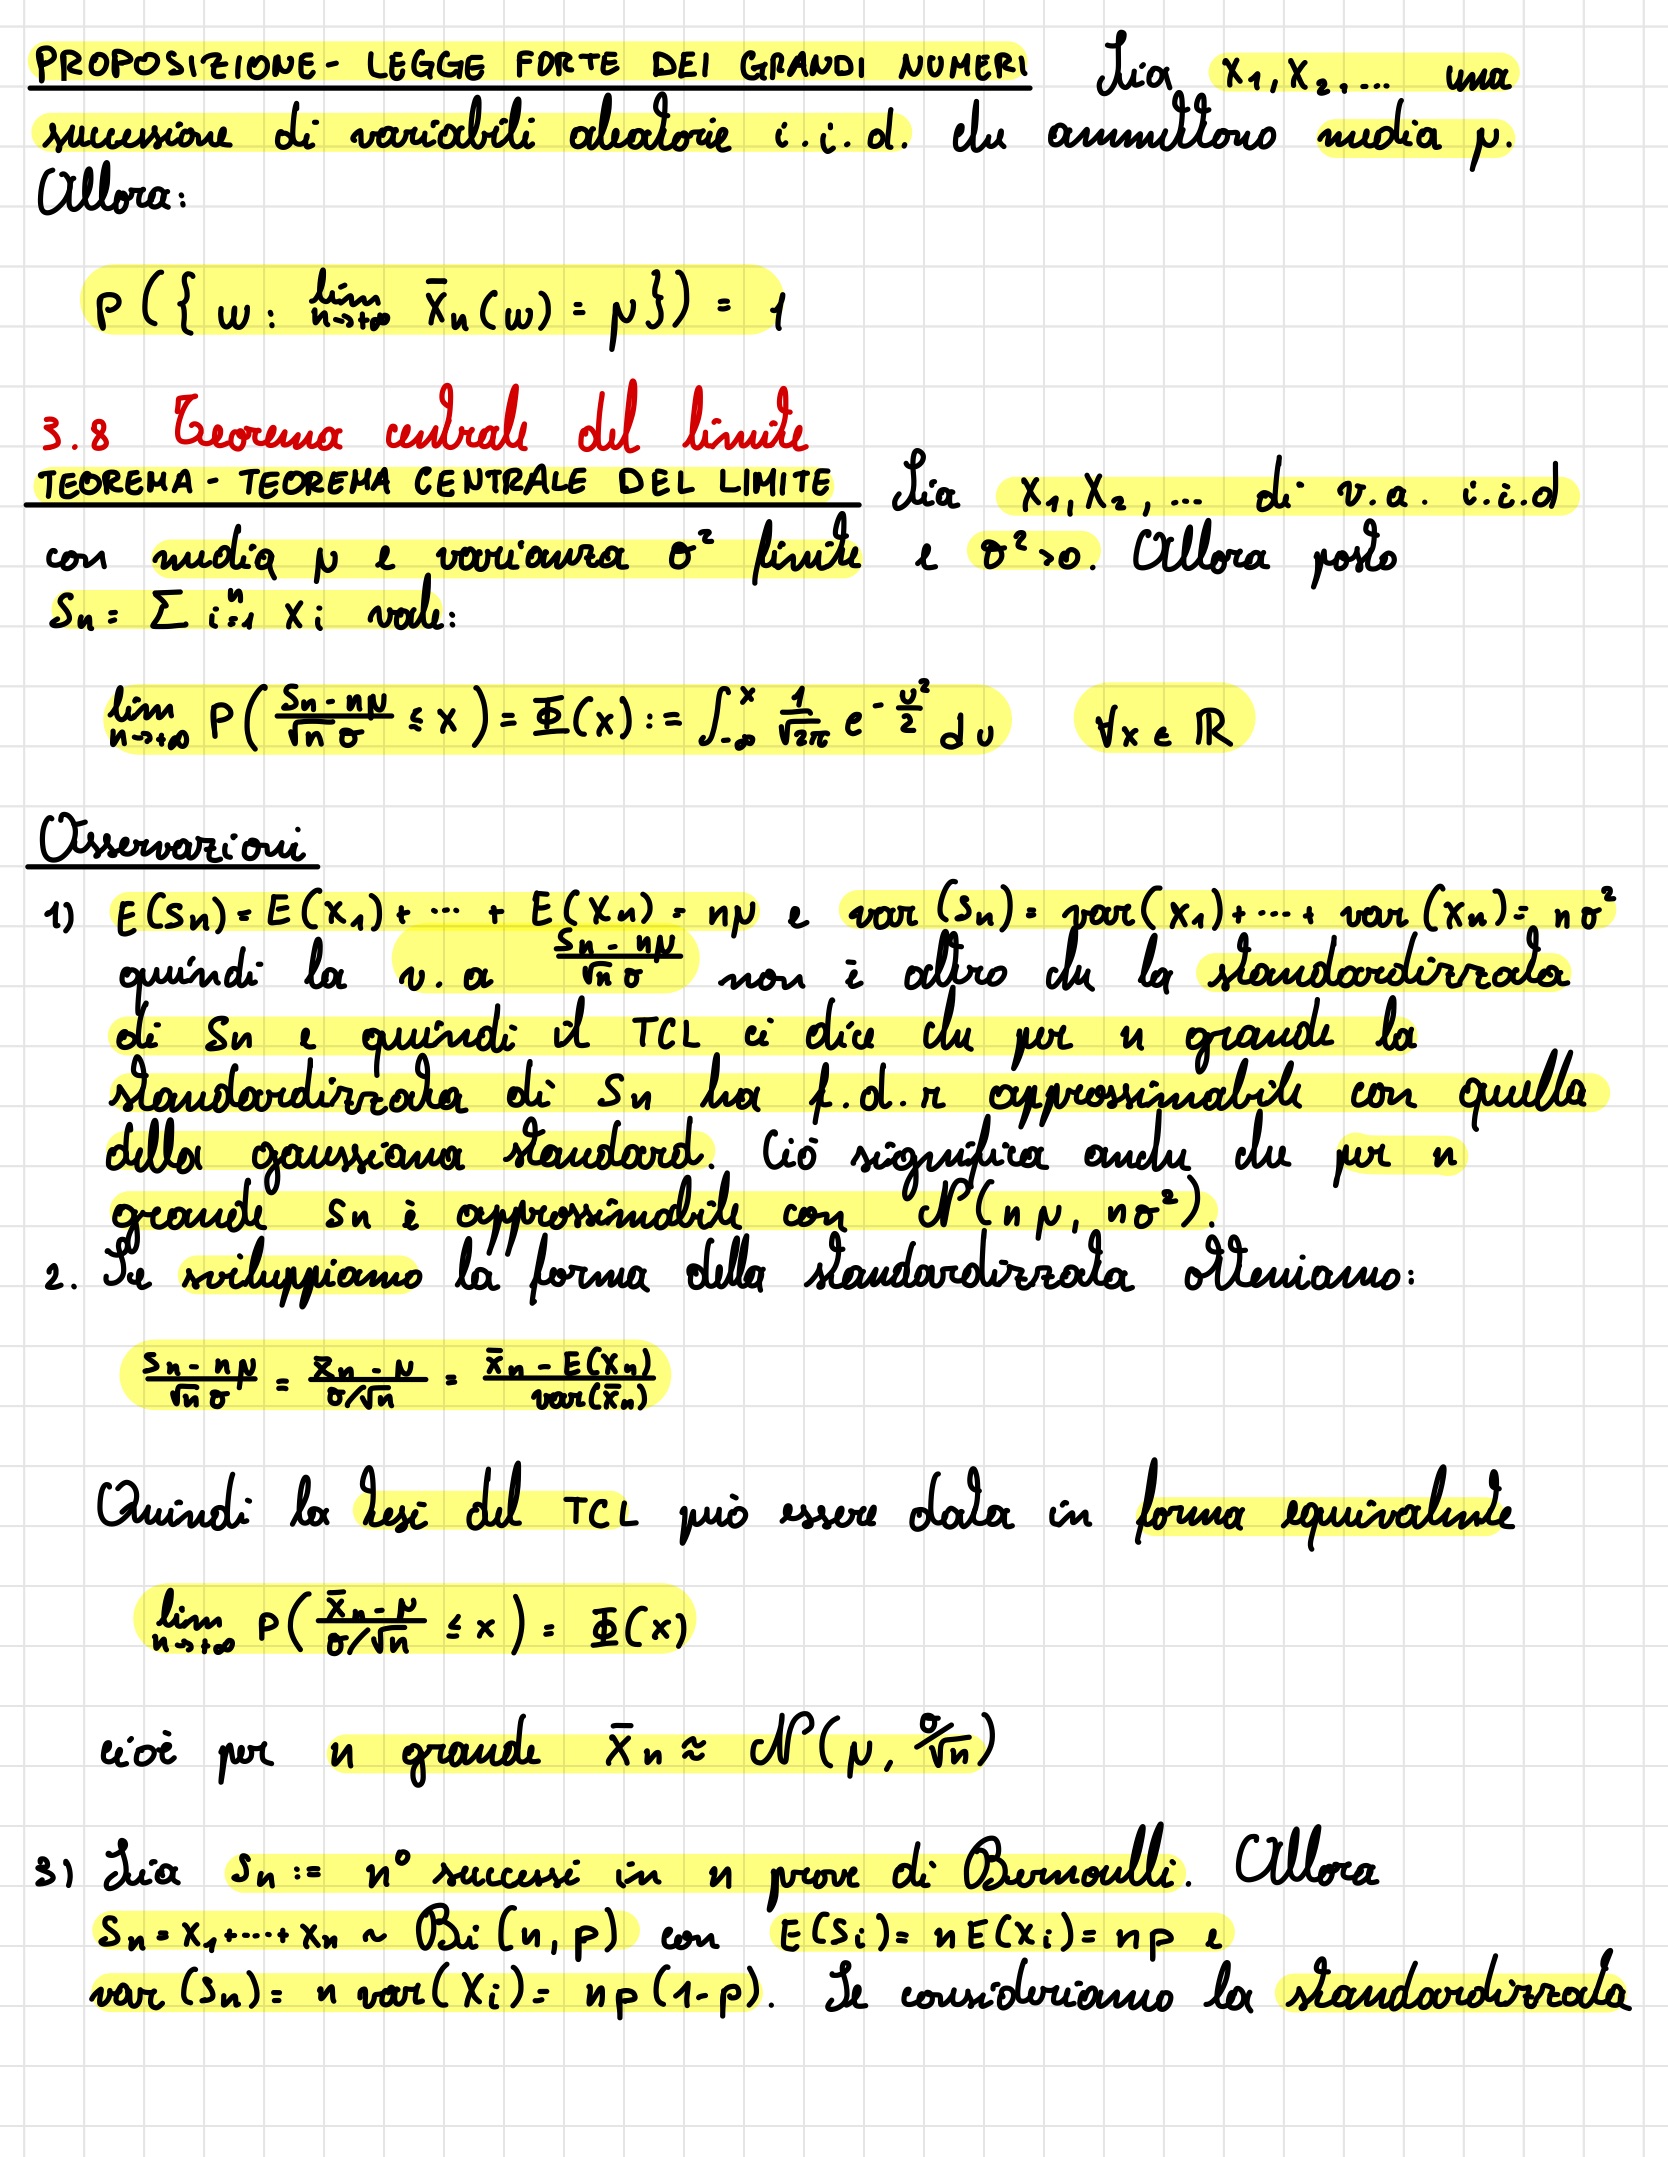 PROPOSIZIONE - LEGGE FORTE DEI GRANDI NUMERI Sia X₁, X₂, ... una
successione di variabili aleatorie i.i.d. che ammettono media μ.
Allora:
P({ω: lim n→+∞ X̄n(ω) = μ}) = 1
3.8 Teorema centrale del limite
TEOREMA - TEOREMA CENTRALE DEL LIMITE Sia X₁, X₂, ... di v.a. i.i.d
con media μ e varianza σ² finite e σ²>0. Allora posto
Sn = Σ i=1 n Xi vale:
lim n→+∞ P((Sn - nμ)/(√n σ) ≤ x) = Φ(x) := ∫_{-∞}^{x} 1/√2π e^{-u²/2} du ∀x ∈ ℝ
Osservazioni
1) E(Sn) = E(X₁) + ... + E(Xn) = nμ e var(Sn) = var(X₁) + ... + var(Xn) = nσ²
quindi la v.a (Sn - nμ)/(√n σ) non è altro che la standardizzata
di Sn e quindi il TCL ci dice che per n grande la
standardizzata di Sn ha f.d.r approssimabile con quella
della gaussiana standard. Ciò significa anche che per n
grande Sn è approssimabile con N(nμ, nσ²).
2. Se sviluppiamo la forma della standardizzata otteniamo:
(Sn - nμ)/(√n σ) = (X̄n - μ)/(σ/√n) = (X̄n - E(Xn))/var(X̄n)
Quindi la tesi del TCL può essere data in forma equivalente
lim n→+∞ P((X̄n - μ)/(σ/√n) ≤ x) = Φ(x)
cioè per n grande X̄n ≈ N(μ, σ/√n)
3) Sia Sn := n° successi in n prove di Bernoulli. Allora
Sn = X₁ + ... + Xn ~ Bi(n, p) con E(Si) = nE(Xi) = np e
var(Sn) = n var(Xi) = np(1-p). Se consideriamo la standardizzata